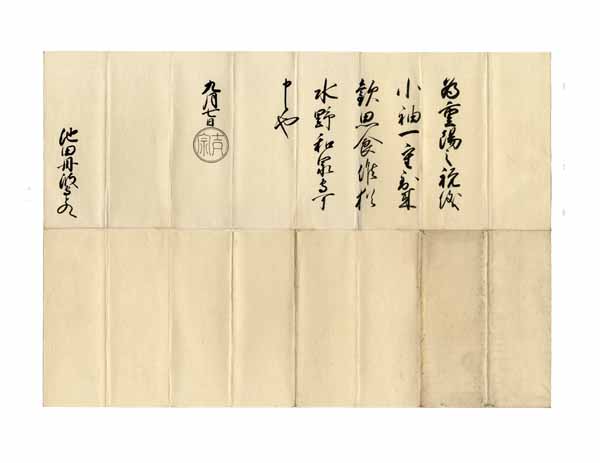 為重陽之祝儀
小袖一重到来
歓思食候猶
水野和泉守可
申也
九月七日
吉宗
池田丹波守とのへ